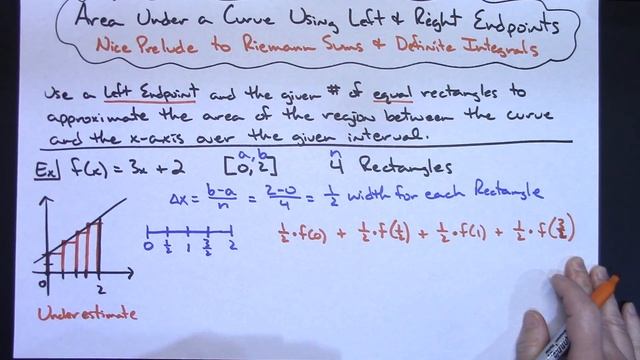 Area Under a Curve Using Left & Right Endpoints
Nice Prelude to Riemann Sums & Definite Integrals
Use a Left Endpoint and the given # of equal rectangles to
approximate the area of the region between the curve
and the x-axis over the given interval.
a, b n
Ex) f(x) = 3x + 2 [0, 2] 4 Rectangles
Δx = b-a/n = 2-0/4 = 1/2 width for each Rectangle
0 1/2 1 3/2 2
1/2 · f(0) + 1/2 · f(1/2) + 1/2 · f(1) + 1/2 · f(3/2)
0 2
Underestimate